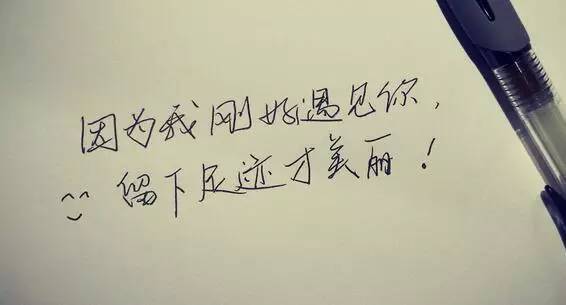 因为我刚好遇见你，
^^ 留下足迹才美丽！